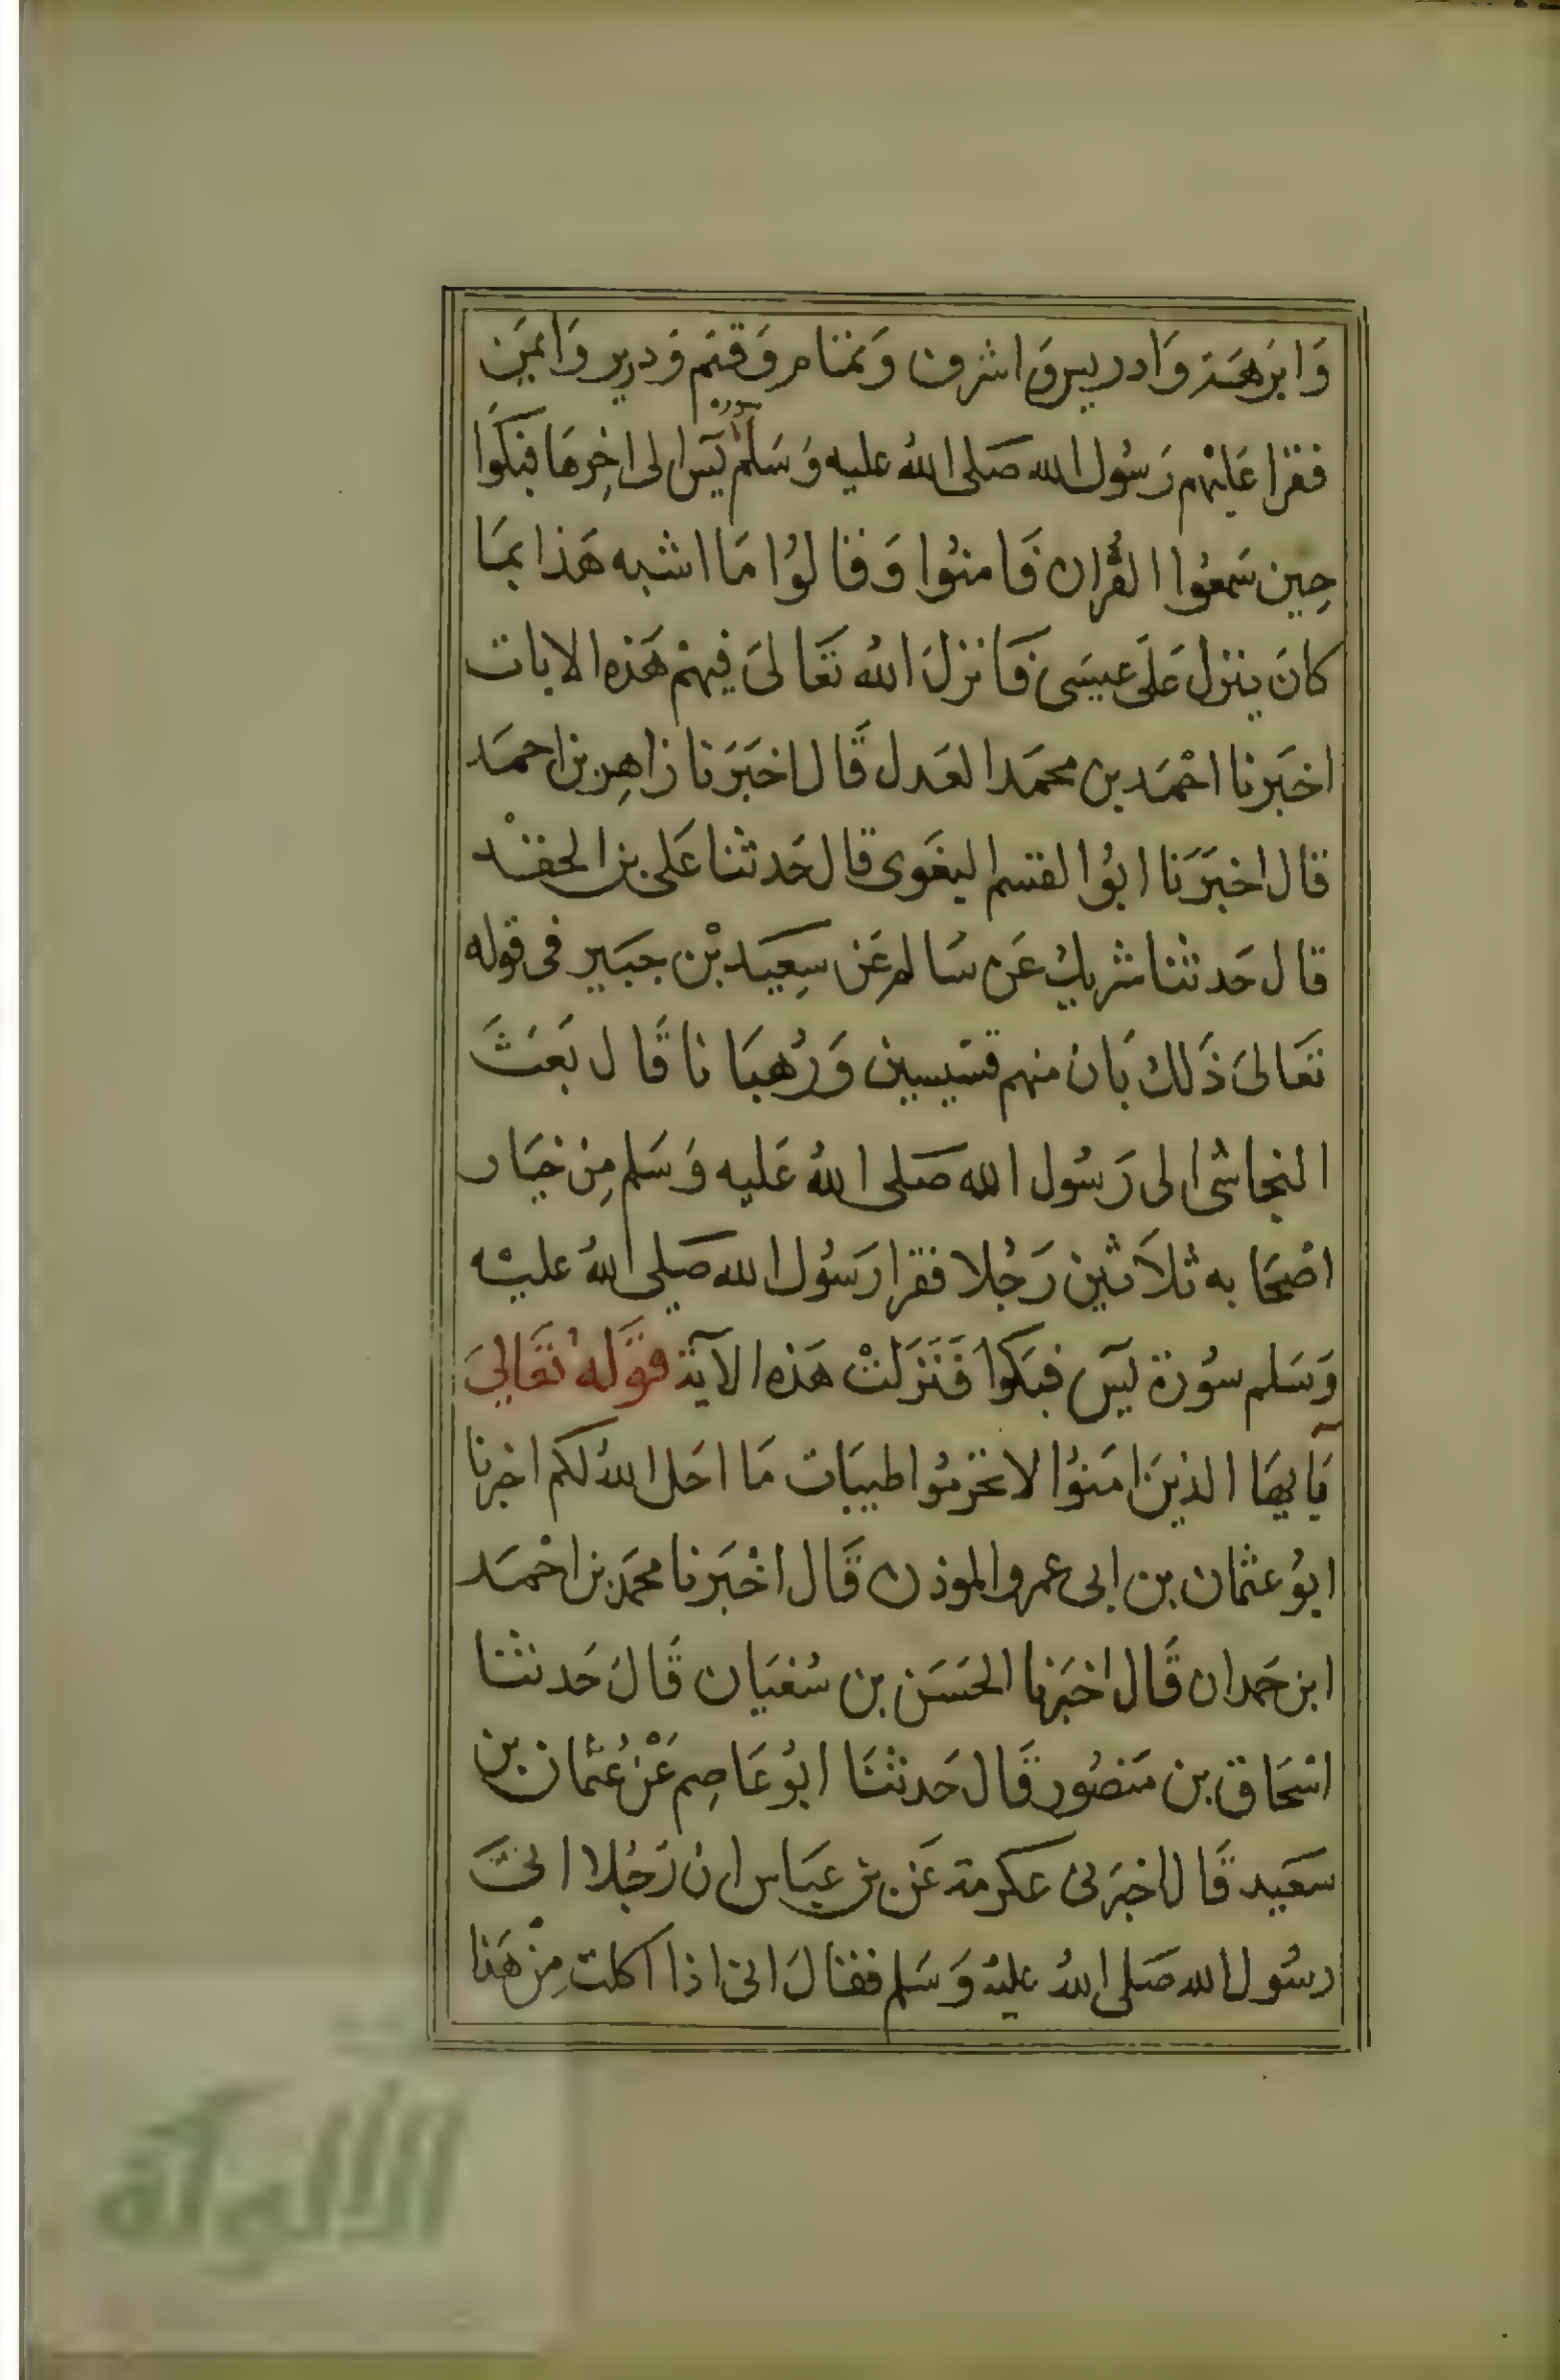 وَابرَهَة وَادريس وَاشرف وَتمَّام وَقثم وَدريد وَايمَن
فقرا عَليْهم رَسُول الله صَلى اللهُ عليه وَسَلم سورة يٓس الى اخِرهَا فبَكَوا
حِين سَمعُوا القُران فَامنُوا وَقالوُا مَا اشبه هَذا بمَا
كانَ ينزل عَلَى عيسَى فَانزلَ اللهُ تَعَالىَ فيهمْ هَذه الايات
اخبَرنا احْمَد بن محمَد العَدل قَال اخبَرَنا زاهِر بن احمَد
قال اخبَرَنا ابوُ القسم البغَوى قال حَدثنا عَلى بن الجعْد
قال حَدثنا شريك عَن سَالم عَن سِعيَد بْن جبَير فى قوله
تعَالىَ ذَلك بَان منهم قسّيسين وَرُهبَانا قَال بَعَثَ
النجاشى الى رَسُول الله صَلى اللهُ عَليه وَسَلم مِن خيَار
اصْحَابه ثلاَثين رَجُلا فقرا رَسُول الله صَلى اللهُ عليْه
وَسَلم سُورة يٓس فبَكوا فَنَزَلتْ هَذه الآية قوَلهُ تعَالىَ
يَٓايهَا الذينَ امَنوُا لا تحَرمُوا طيبَات مَا احَل اللهُ لكم اخبرنا
ابوُ عثمان بن ابى عمرو الموذن قَال اخْبَرنا محمَد بن احْمَد
ابن حَمدان قَال اخبَرنا الحَسَن بن سُفيَان قَالَ حَدثنا
اسْحَاق بن مَنصُور قَال حَدثنَا ابوُ عَاصِم عَنْ عُثمان بن
سَعَيد قَال اخبرَنى عكرمة عَن بن عبَاس ان رَجُلا اتىَ
رسُول الله صَلى اللهُ عليهْ وَسَلم فقالَ انى اذا اكلت مِنْ هَذا
الألوكة